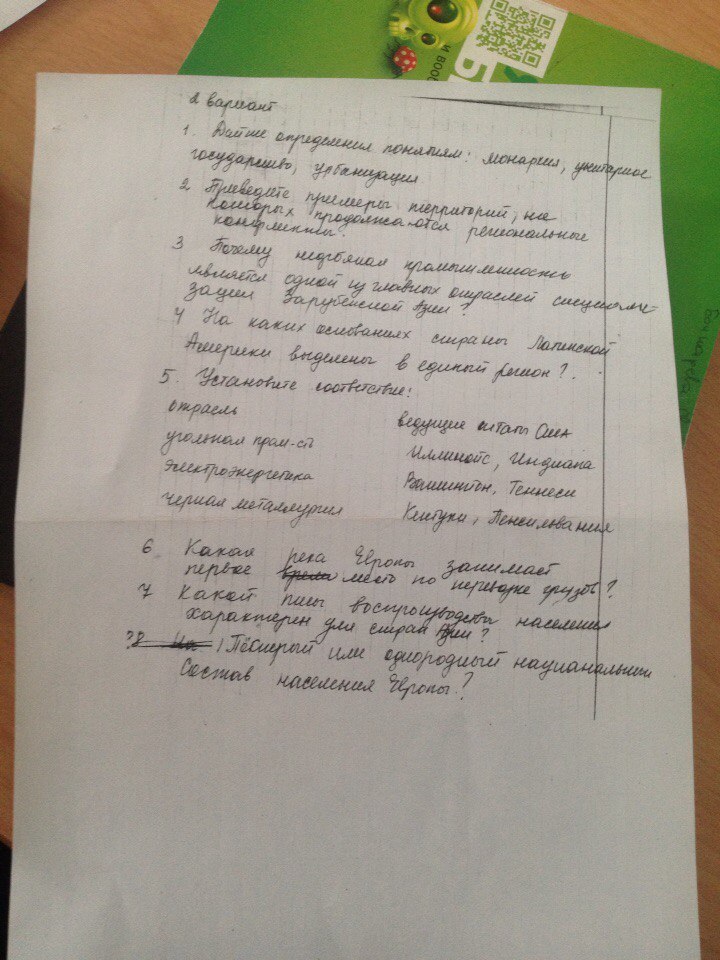 И ВООБ
2 вариант
1. Дайте определения понятиям: монархия, унитарное
государство, урбанизация
2 Приведите примеры территорий, на
которых продолжаются региональные
конфликты.
3 Почему нефтяная промышленность
является одной из главных отраслей специали-
зации Зарубежной Азии?
4 На каких основаниях страны Латинской
Америки выделены в единый регион?.
5. Установите соответствие:
отрасль ведущие штаты США
угольная пром-сть Иллинойс, Индиана
электроэнергетика Вашингтон, Теннеси
черная металлургия Кентуки, Пенсильвания
6 Какая река Европы занимает
первое место по перевозке грузов?
7 Какой типы воспроизводства населения
характерен для стран Азии?
8 Пёстрый или однородный национальный
состав населения Европы?